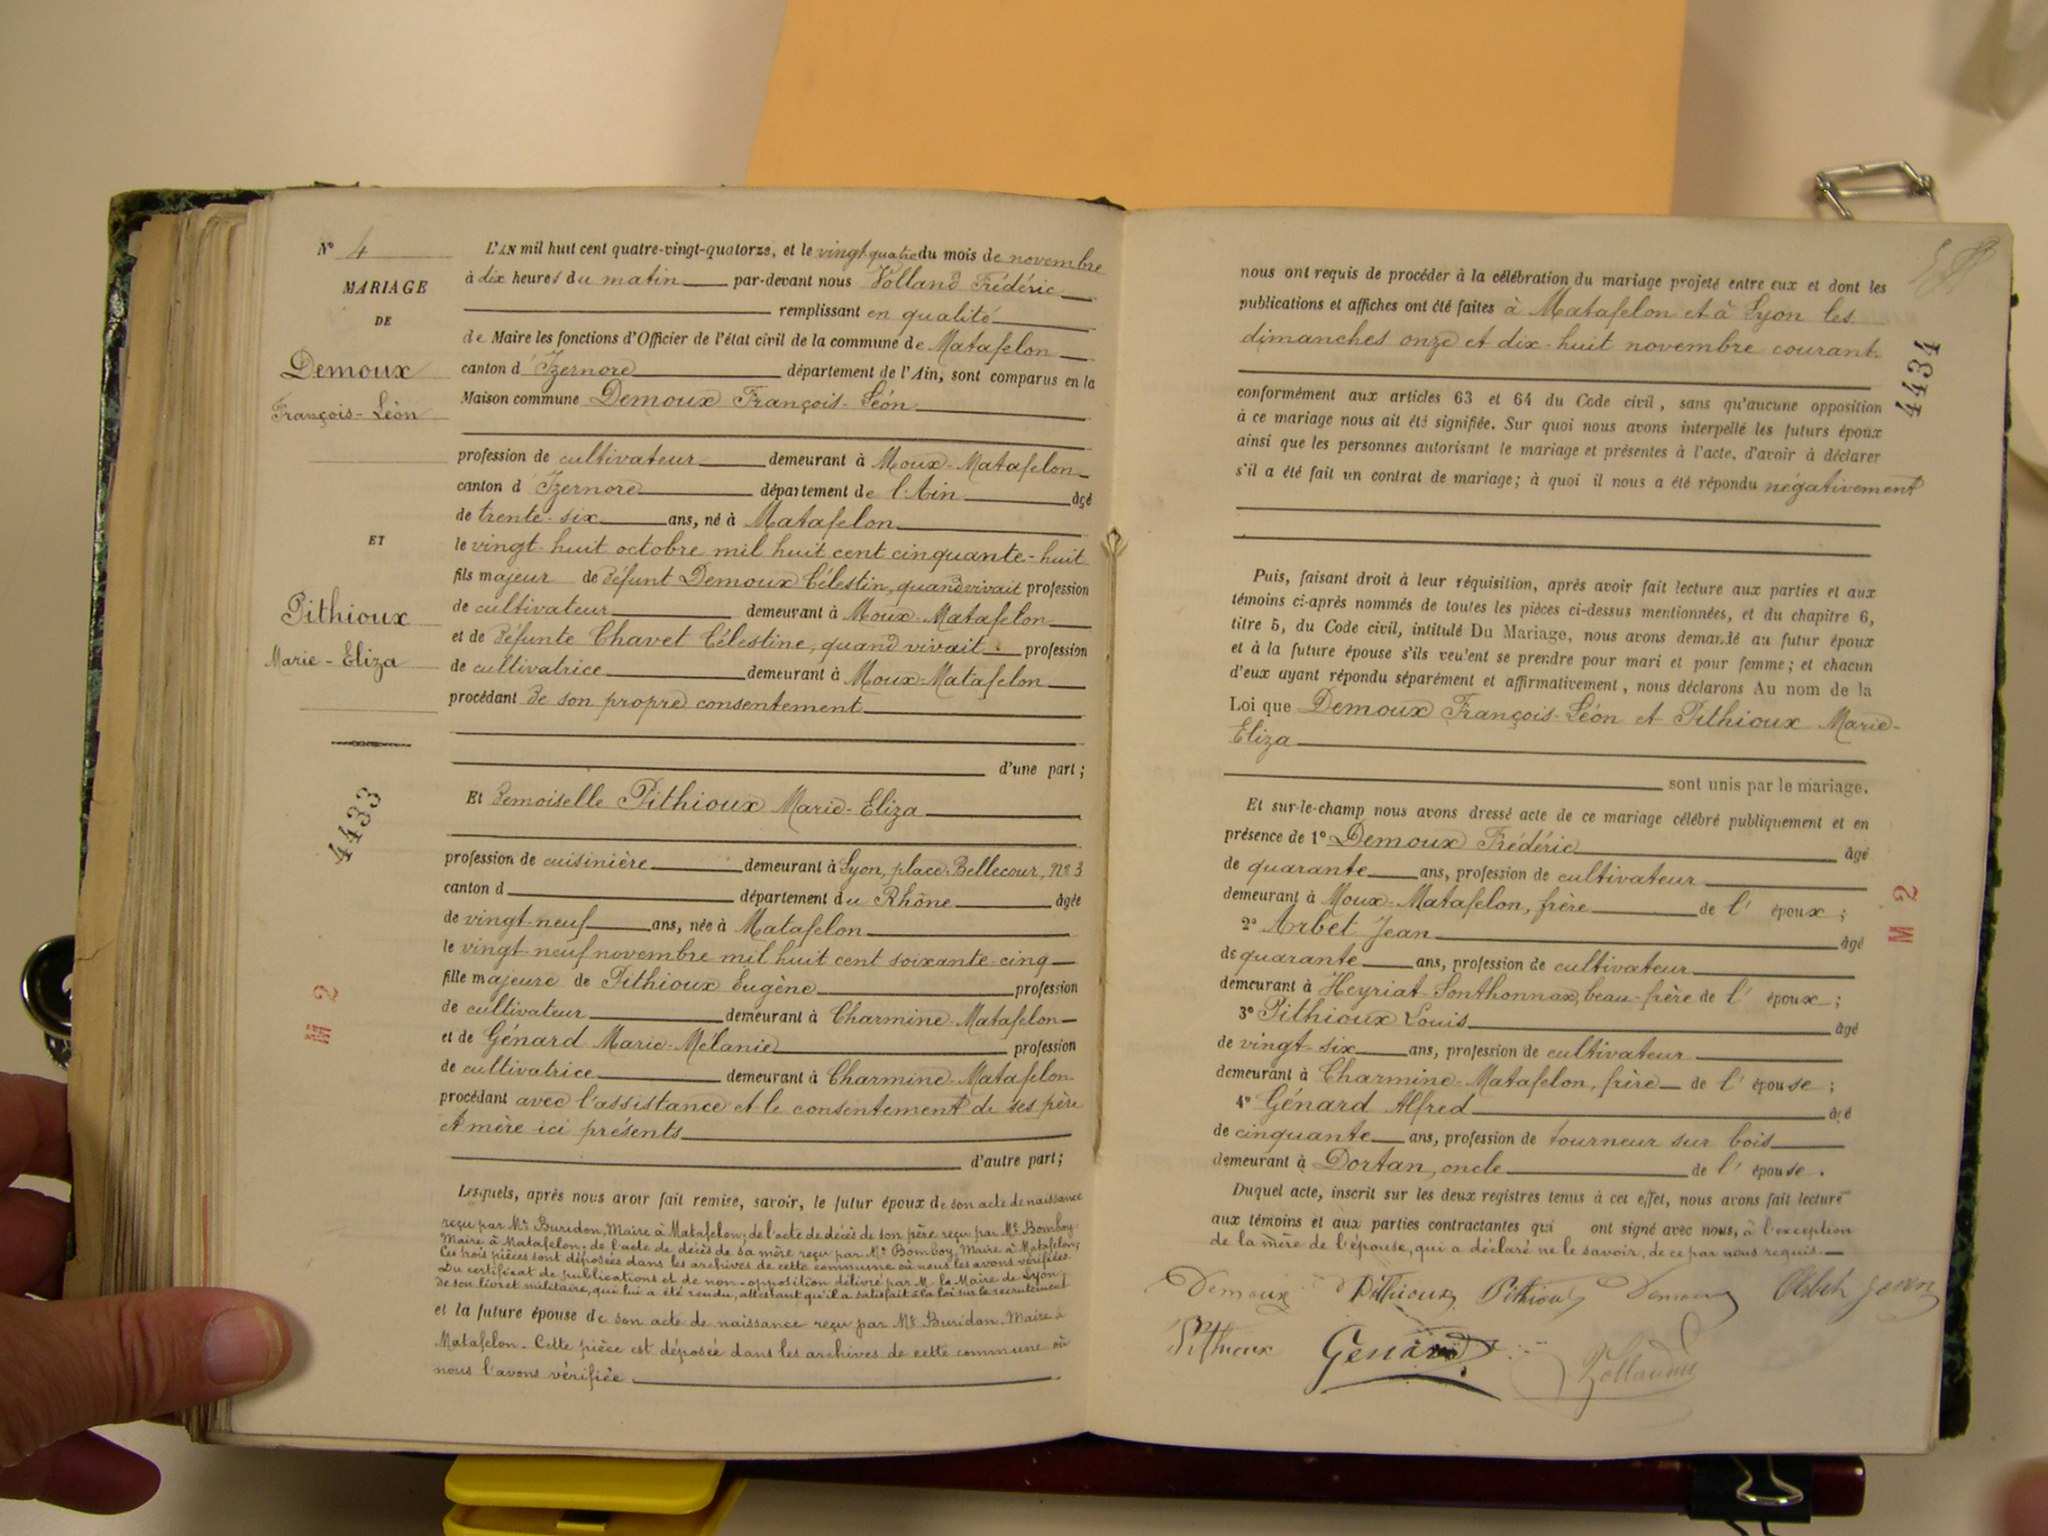 N° 4
MARIAGE
DE
Demoux
François-Léon
ET
Pithioux
Marie-Eliza
4433
M 2
L'AN mil huit cent quatre-vingt-quatorze, et le vingt quatre du mois de novembre
à dix heures du matin par-devant nous Volland Frédéric
remplissant en qualité
de Maire les fonctions d'Officier de l'état civil de la commune de Matafelon
canton d'Izernore département de l'Ain, sont comparus en la
Maison commune Demoux François-Léon
profession de cultivateur demeurant à Moux-Matafelon
canton d'Izernore département de l'Ain âgé
de trente-six ans, né à Matafelon
le vingt-huit octobre mil huit cent cinquante-huit
fils majeur de défunt Demoux Célestin, quand vivait profession
de cultivateur demeurant à Moux-Matafelon
et de défunte Chavet Célestine, quand vivait profession
de cultivatrice demeurant à Moux-Matafelon
procédant de son propre consentement
d'une part;
Et demoiselle Pithioux Marie-Eliza
profession de cuisinière demeurant à Lyon, place Bellecour, N° 3
canton d département du Rhône âgée
de vingt-neuf ans, née à Matafelon
le vingt-neuf novembre mil huit cent soixante-cinq
fille majeure de Pithioux Eugène profession
de cultivateur demeurant à Charmine-Matafelon
et de Génard Marie-Mélanie profession
de cultivatrice demeurant à Charmine-Matafelon
procédant avec l'assistance et le consentement de ses père
et mère ici présents
d'autre part;
Lesquels, après nous avoir fait remise, savoir, le futur époux de son acte de naissance
reçu par Mr Buridon, Maire à Matafelon; de l'acte de décès de son père reçu par Mr Bomboy
Maire à Matafelon; de l'acte de décès de sa mère reçu par Mr Bomboy, Maire à Matafelon;
Ces trois pièces sont déposées dans les archives de cette commune où nous les avons vérifiées.
Du certificat de publications et de non-opposition délivré par M. le Maire de Lyon;
de son livret militaire, qui lui a été rendu, attestant qu'il a satisfait à la loi sur le recrutement
et la future épouse de son acte de naissance reçu par Mr Buridon, Maire à
Matafelon. Cette pièce est déposée dans les archives de cette commune où
nous l'avons vérifiée
nous ont requis de procéder à la célébration du mariage projeté entre eux et dont les
publications et affiches ont été faites à Matafelon et à Lyon les
dimanches onze et dix-huit novembre courant.
conformément aux articles 63 et 64 du Code civil, sans qu'aucune opposition
à ce mariage nous ait été signifiée. Sur quoi nous avons interpellé les futurs époux
ainsi que les personnes autorisant le mariage et présentes à l'acte, d'avoir à déclarer
s'il a été fait un contrat de mariage; à quoi il nous a été répondu négativement
Puis, faisant droit à leur réquisition, après avoir fait lecture aux parties et aux
témoins ci-après nommés de toutes les pièces ci-dessus mentionnées, et du chapitre 6,
titre 5, du Code civil, intitulé Du Mariage, nous avons demandé au futur époux
et à la future épouse s'ils veulent se prendre pour mari et pour femme; et chacun
d'eux ayant répondu séparément et affirmativement, nous déclarons Au nom de la
Loi que Demoux François-Léon et Pithioux Marie-
Eliza
sont unis par le mariage.
Et sur-le-champ nous avons dressé acte de ce mariage célébré publiquement et en
présence de 1° Demoux Frédéric âgé
de quarante ans, profession de cultivateur
demeurant à Moux-Matafelon, frère de l'époux;
2° Arbet Jean âgé
de quarante ans, profession de cultivateur
demeurant à Heyriat-Sonthonnax, beau-frère de l'époux;
3° Pithioux Louis âgé
de vingt-six ans, profession de cultivateur
demeurant à Charmine-Matafelon, frère de l'épouse;
4° Génard Alfred âgé
de cinquante ans, profession de tourneur sur bois
demeurant à Dortan, oncle de l'épouse.
Duquel acte, inscrit sur les deux registres tenus à cet effet, nous avons fait lecture
aux témoins et aux parties contractantes qui ont signé avec nous, à l'exception
de la mère de l'épouse, qui a déclaré ne le savoir, de ce par nous requis.
Demoux Pithioux Pithioux Demoux Arbet Jean
Pithioux Genard Vollandus
4434
M 2